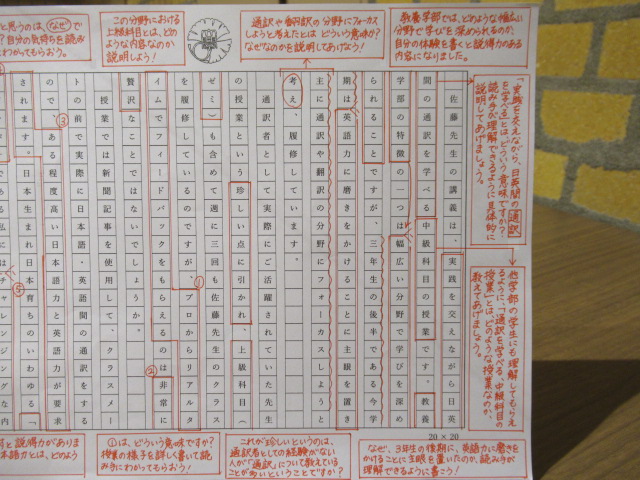 教養学部では、どのような幅広い
分野で学びを深められるのか、
自分の体験を書くと説得力のある
内容になりました。
通訳や翻訳の分野にフォーカス
しようと考えたとは どういう意味か？
なぜ?なのかを説明してあげよう！
この分野における
上級科目とは、どの
ような内容なのか
説明しよう！
と思うのは、なぜ?で
？自分の気持ちを読み
にわかってもらおう。
「実践を交えながら、日英間の通訳
を学べる」とは、どういう意味ですか？
読み手が理解できるように具体的に
説明してあげましょう。
他学部の学生にも理解してもらえ
るように、「通訳を学べる、中級科目の
授業」とは、どのような授業なのか、
教えてあげましょう。
佐藤先生の講義は、実践を交えながら日英
間の通訳を学べる中級科目の授業です。教養
学部の特徴の一つは幅広い分野で学びを深め
られることですが、三年生の後半である今学
期は英語力に磨きをかけることに主眼を置き
主に通訳や翻訳の分野にフォーカスしようと
考え、履修しています。
通訳者として実際にご活躍されていた先生
の授業という珍しい点に引かれ、上級科目（
ゼミ）も含めて週に三回も佐藤先生のクラス
を履修しているのですが、①プロからリアルタ
イムでフィードバックをもらえるのは②非常に
贅沢なことではないでしょうか。
授業では新聞記事を使用して、クラスメー
トの前で実際に日本語・英語間の通訳をする
ので、③ある程度高い日本語力と英語力が要求
されます。日本生まれ⑤日本育ちのいわゆる「
である私にはチャレンジングな内
20×20
なぜ、3年生の後期に、英語力に磨きを
かけることに主眼を置いたのか、読み手が
理解できるように書こう！
これが珍しいというのは、
通訳者としての経験がない
人が「通訳」について教えている
ことが多いということですか？
①は、どういう意味ですか？
授業の様子を詳しく書いて読
み手にわかってもらおう！
と説得力がありま
本語力とは、どのよう